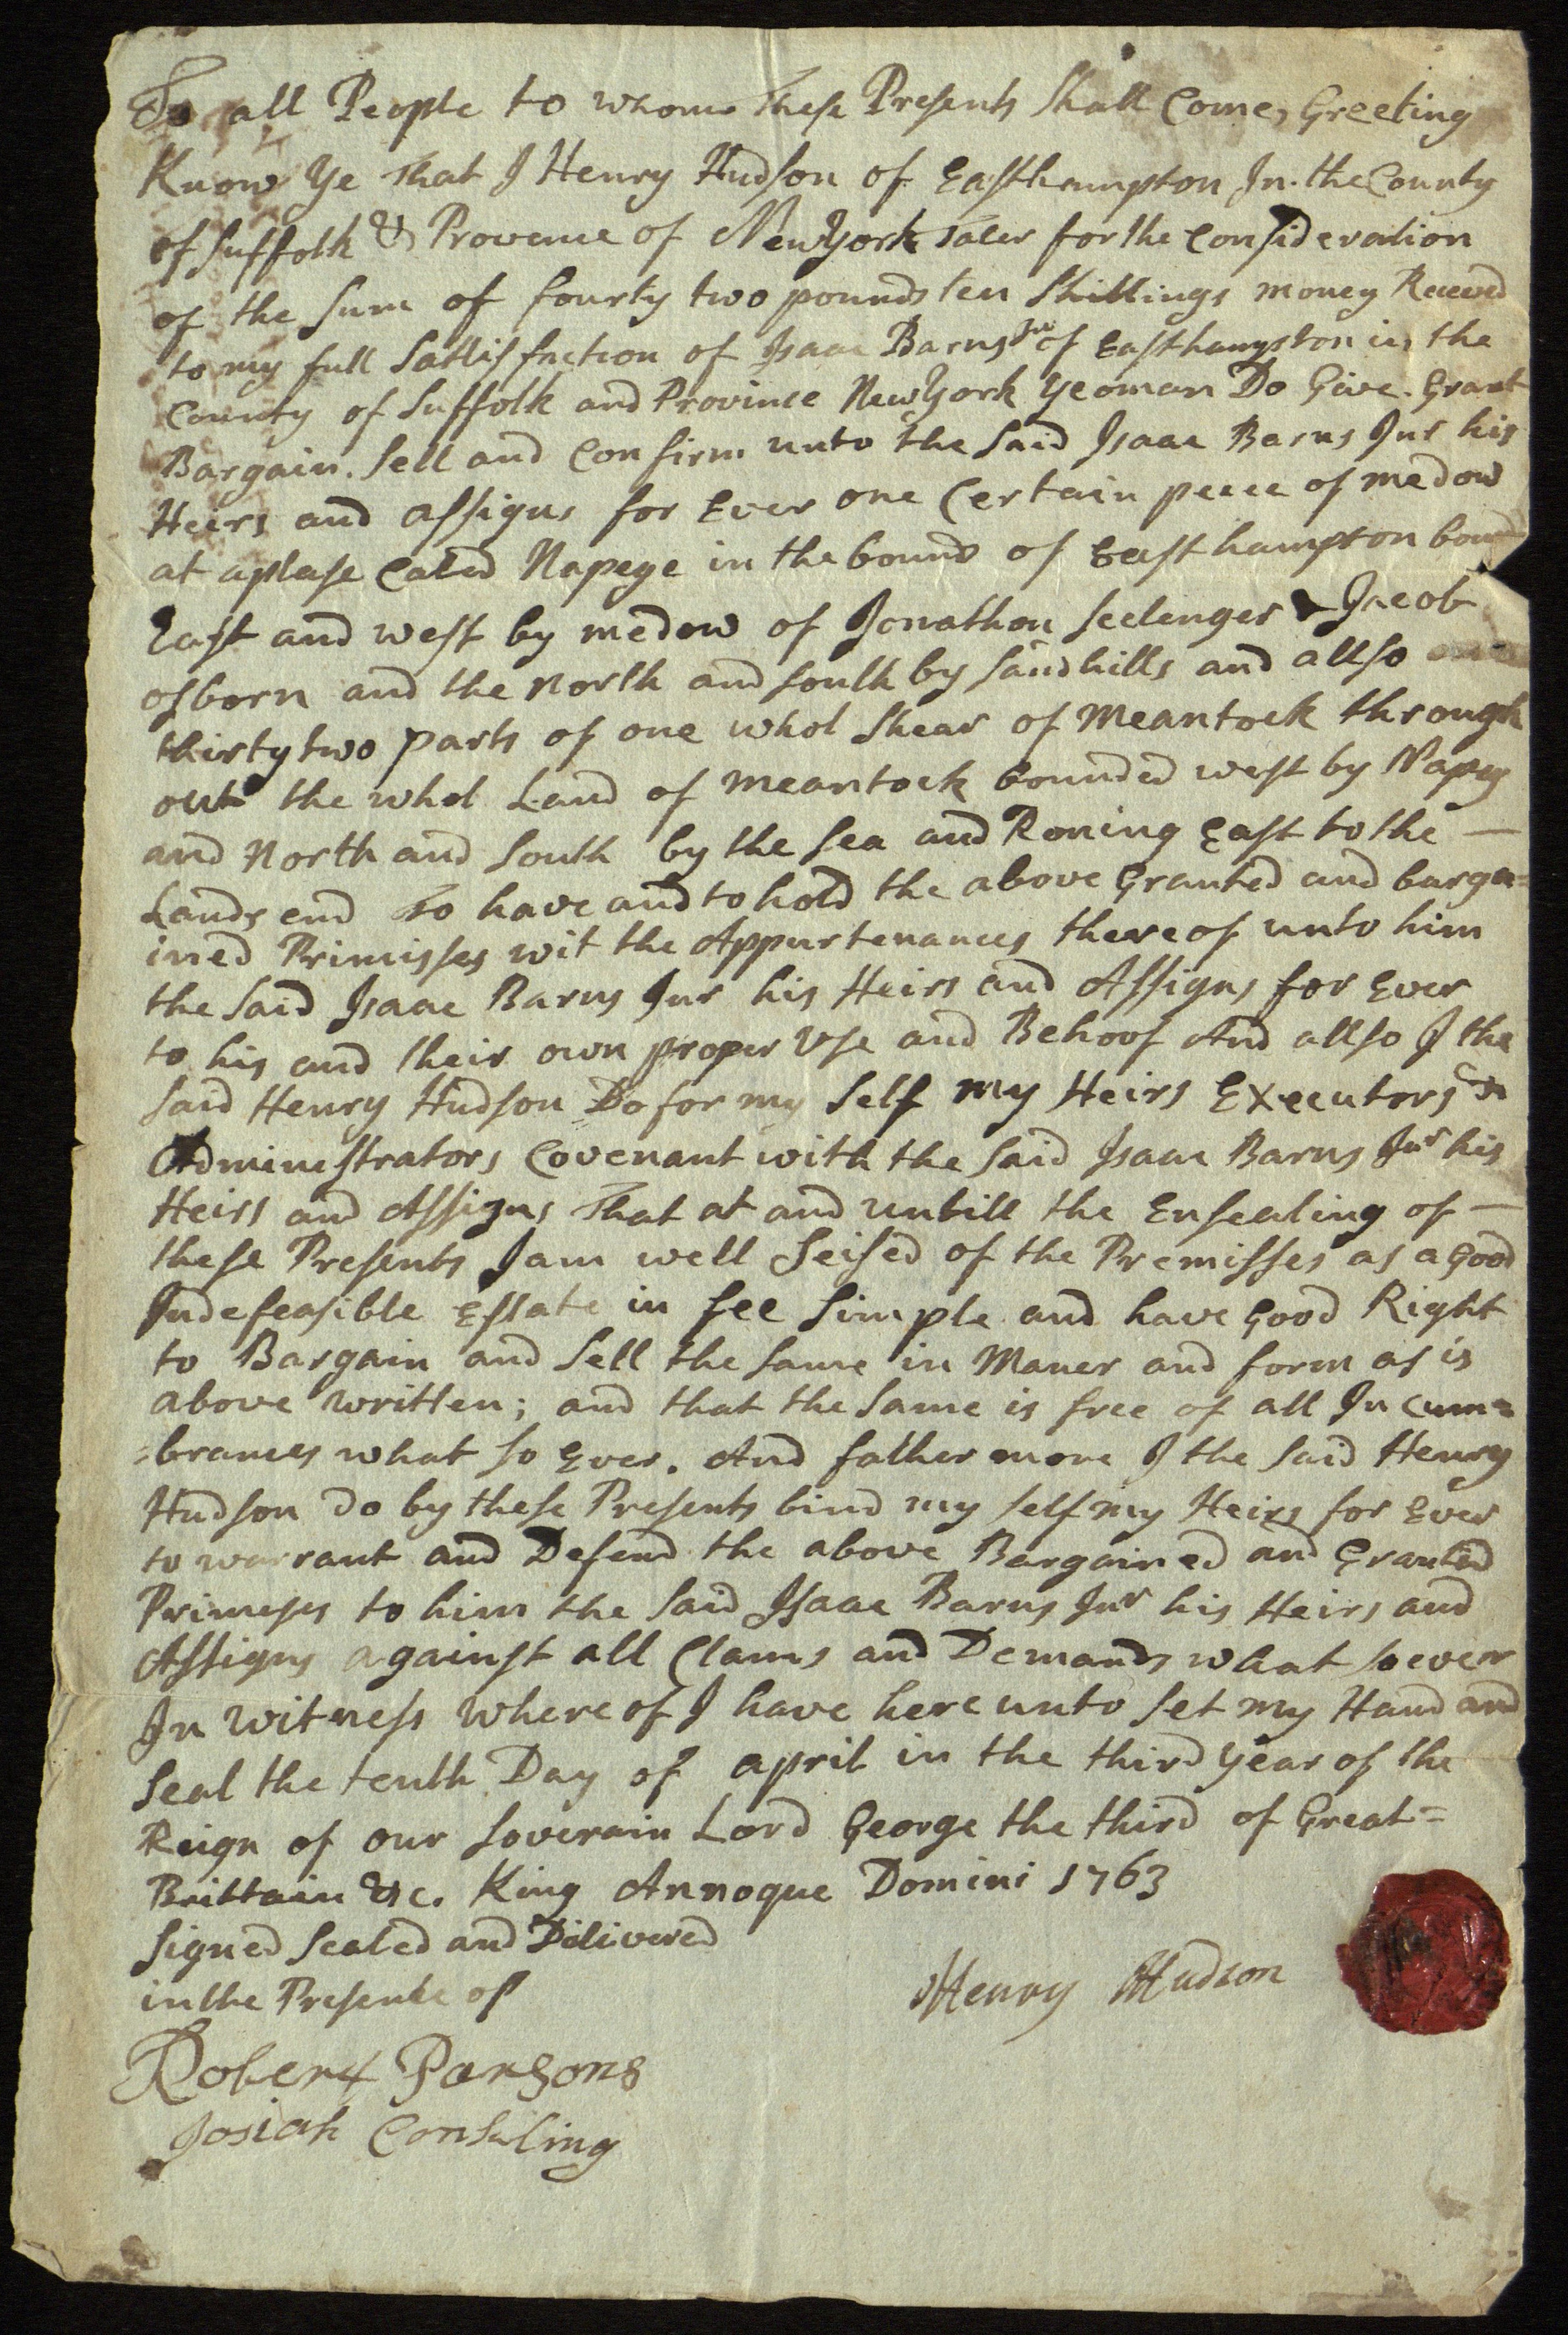 To all People to whome These Presents Shall Come, Greeting
Know Ye That I Henry Hudson of Easthampton In the County
of Suffolk & Provence of NewYork Taler for the Consideration
of the Sum of fourty two pounds ten Shillings money Receved
to my full Sattisfaction of Isaac Barns Jnr of Easthampton in the
County of Suffolk and Province NewYork Yeoman Do Give. Grant
Bargain. Sell and Confirm unto the Said Isaac Barns Jnr his
Heirs and assigns for Ever one Certain peece of medow
at aplase Caled Napege in the bounds of Easthampton bound
East and west by medow of Jonathan Seelenger & Jacob
osborn and the north and south by Sandhills and allso
thirtytwo parts of one whol Shear of Meantock through
out the whol Land of meantock bounded west by Napeg
and North and South by the Sea and Roning East to the —
Lands end To have and to hold the above Granted and barga=
ined Primisses wit the Appurtenances thereof unto him
the Said Isaac Barns Jnr his Heirs and Assigns for Ever
to his and their own proper Use and Behoof And allso I the
Said Henry Hudson Do for my Self my Heirs Executors &
Adminestrators Covenant with the Said Isaac Barns Jnr his
Heirs and Assigns That at and untill the Ensealing of —
these Presents I am well Seised of the Premisses as a Good
Indefeasible Estate in fee Simple and have Good Right
to Bargain and Sell the Same in Maner and form as is
above written; and that the Same is free of all Incum=
=brances what so Ever. And father more I the Said Henry
Hudson do by these Presents bind my self my Heirs for Ever
to warrant and Defend the above Bargained and Granted
Primeses to him the Said Isaac Barns Jnr his Heirs and
Assigns against all Clams and Demands what soever
In witness where of I have here unto Set my Hand and
Seal the tenth Day of april in the third Year of the
Reign of our Soverain Lord George the third of Great=
Brittain &c. King Annoque Domini 1763
Signed Sealed and Dilivered
in the Presenbe of
Henry Hudson
Robert Parsons
Josiah Conkling